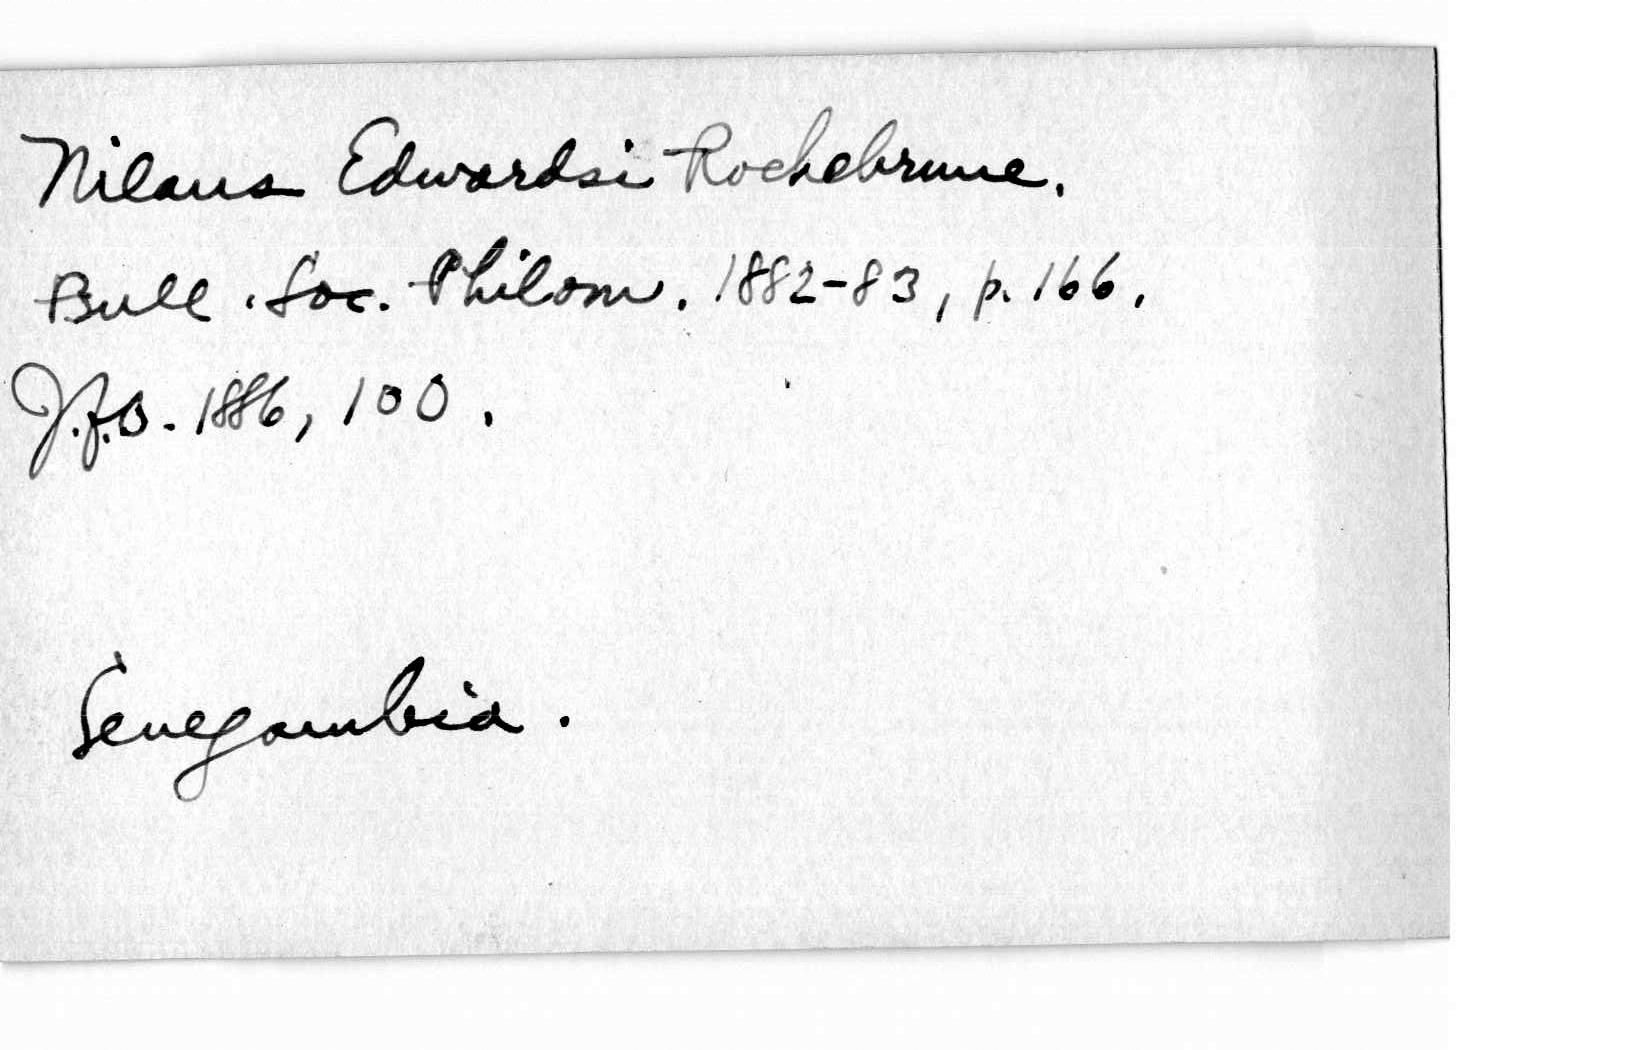 Nilaus Edwardsi Rochebrune.
Bull. Soc. Philom. 1882-83, p. 166.
J.f.O. 1886, 100.
Senegambia.